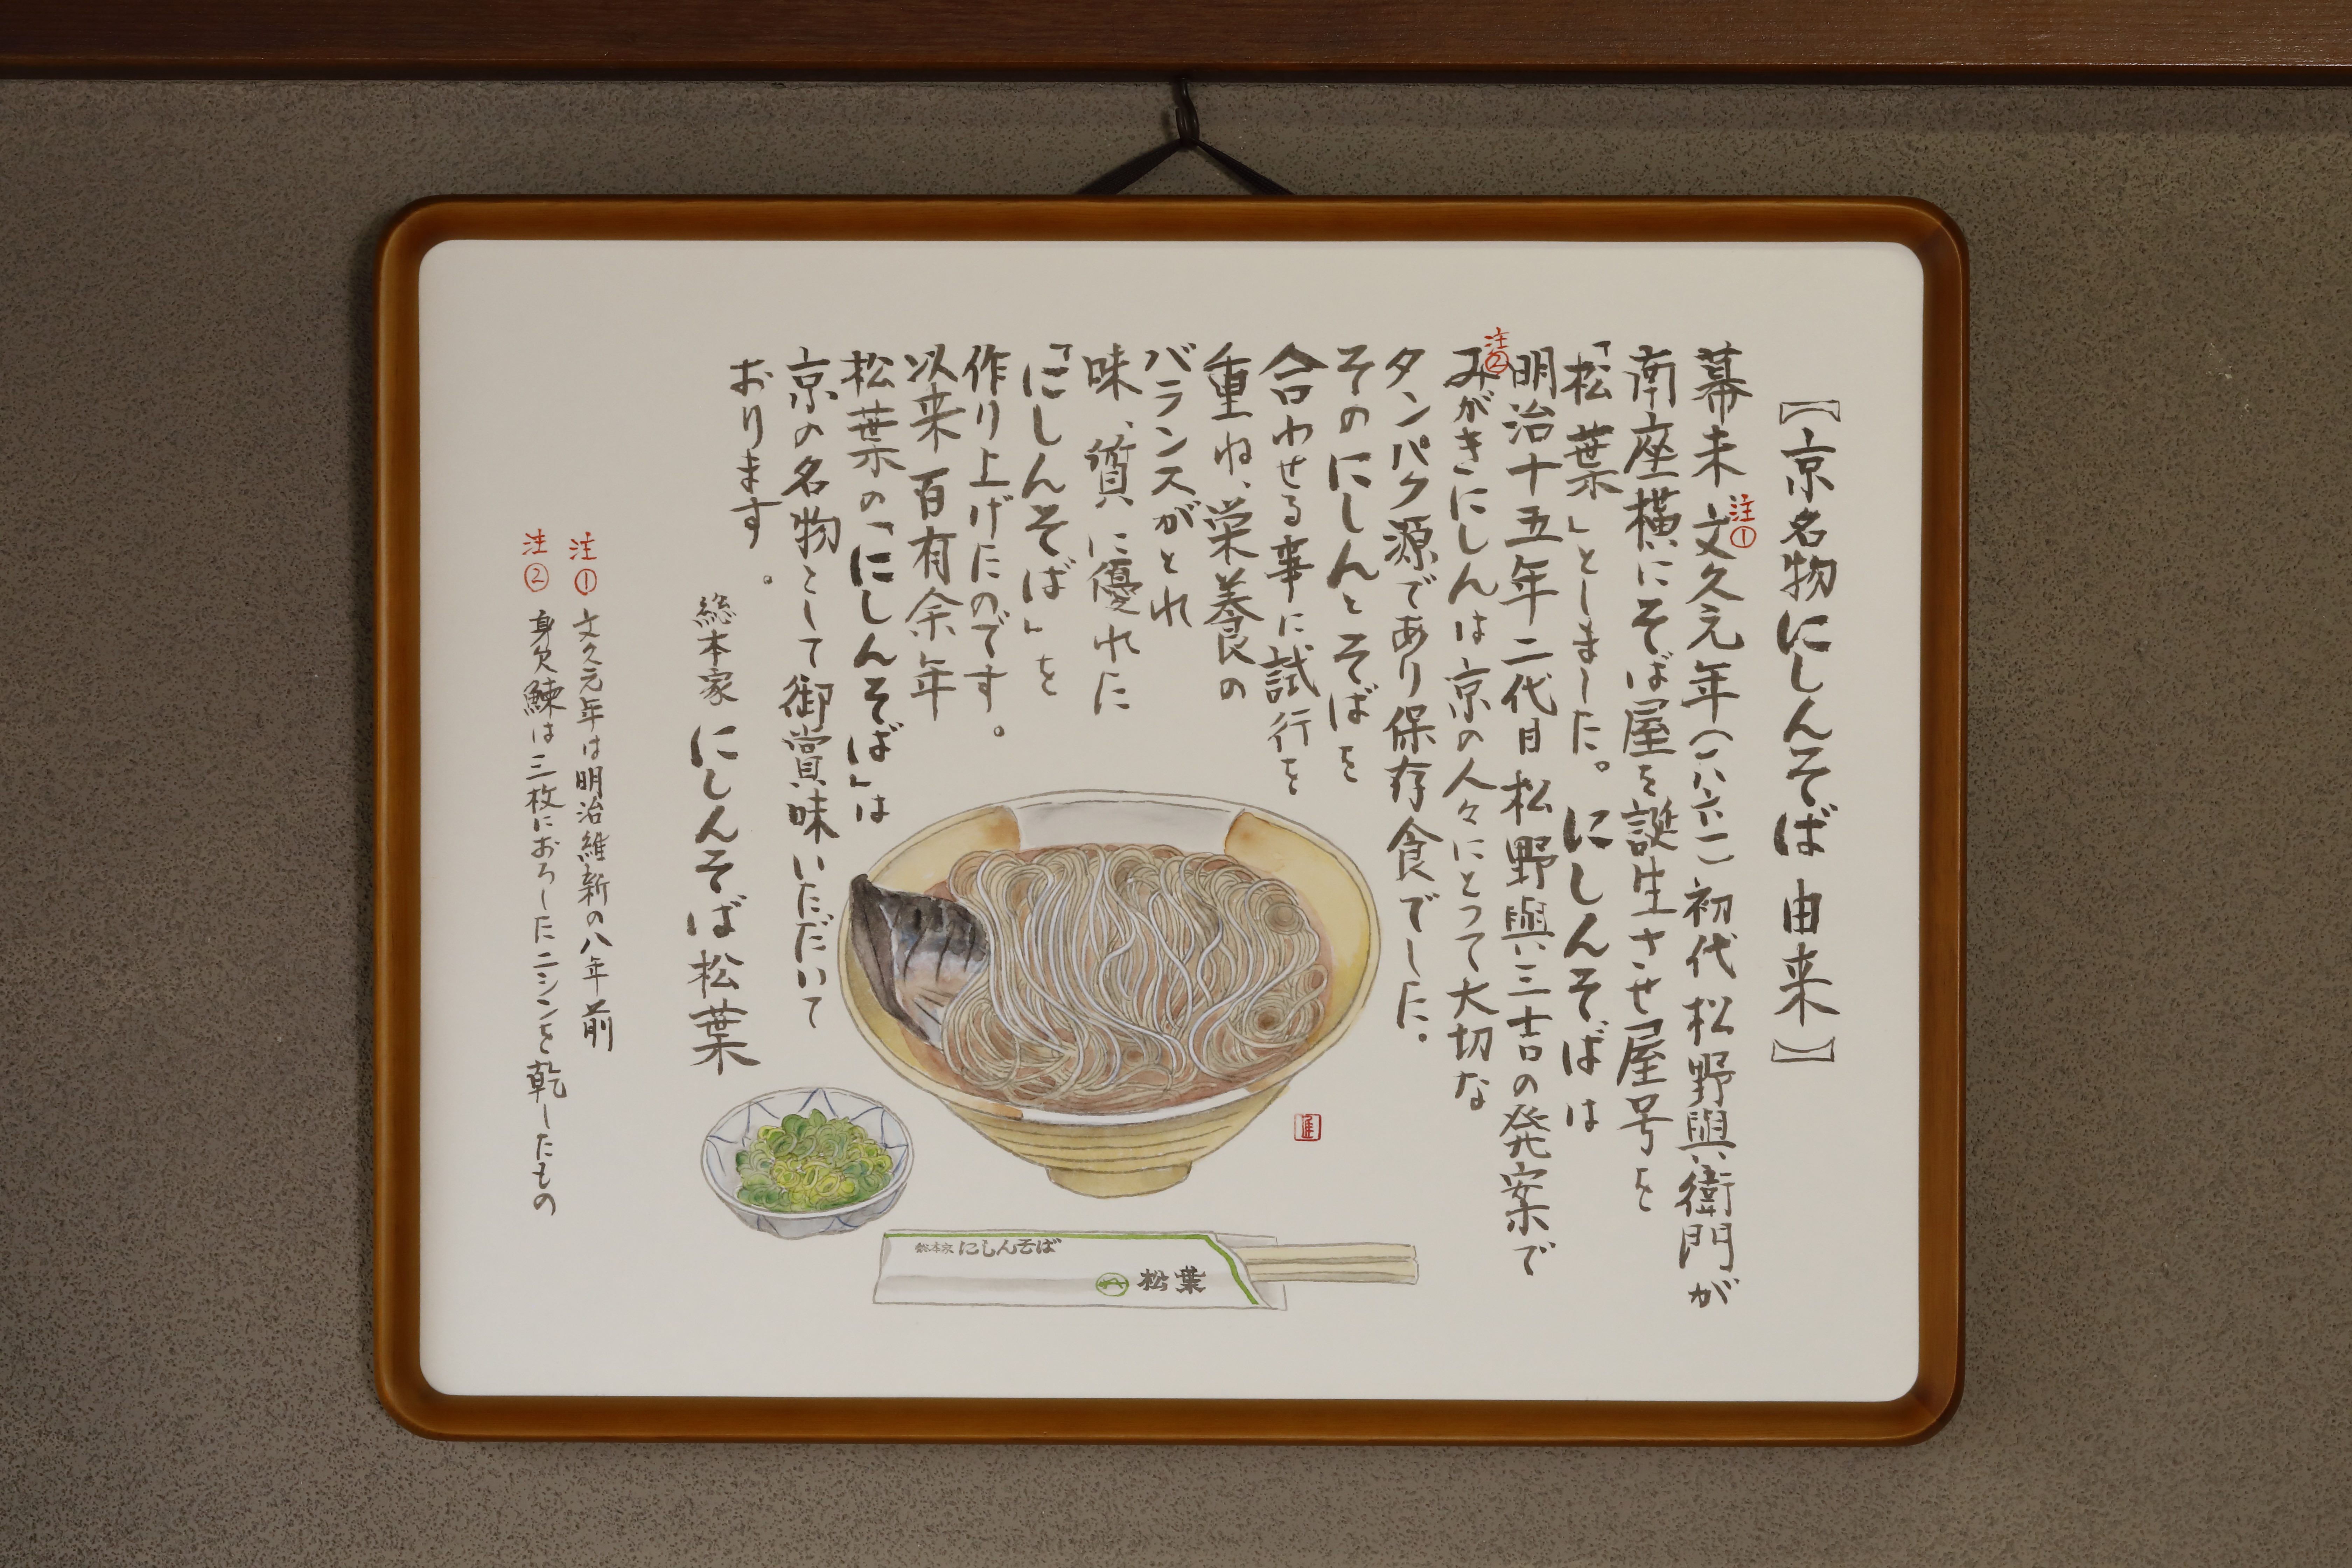 【京名物にしんそば 由来】
幕末 文久元年(一八六一)初代 松野與衛門が
注①
南座横にそば屋を誕生させ屋号を
「松葉」としました。にしんそばは
明治十五年二代目松野與三吉の発案で
注②
みがきにしんは京の人々にとって大切な
タンパク源であり保存食でした。
そのにしんとそばを
合わせる事に試行を
重ね、栄養食の
バランスがとれ
味、質に優れた
「にしんそば」を
作り上げたのです。
以来百有余年
松葉の「にしんそば」は
京の名物として御賞味いただいて
おります。
総本家 にしんそば 松葉
注① 文久元年は明治維新の八年前
注② 身欠鰊は三枚におろしたニシンを乾したもの
進
総本家 にしんそば
松葉